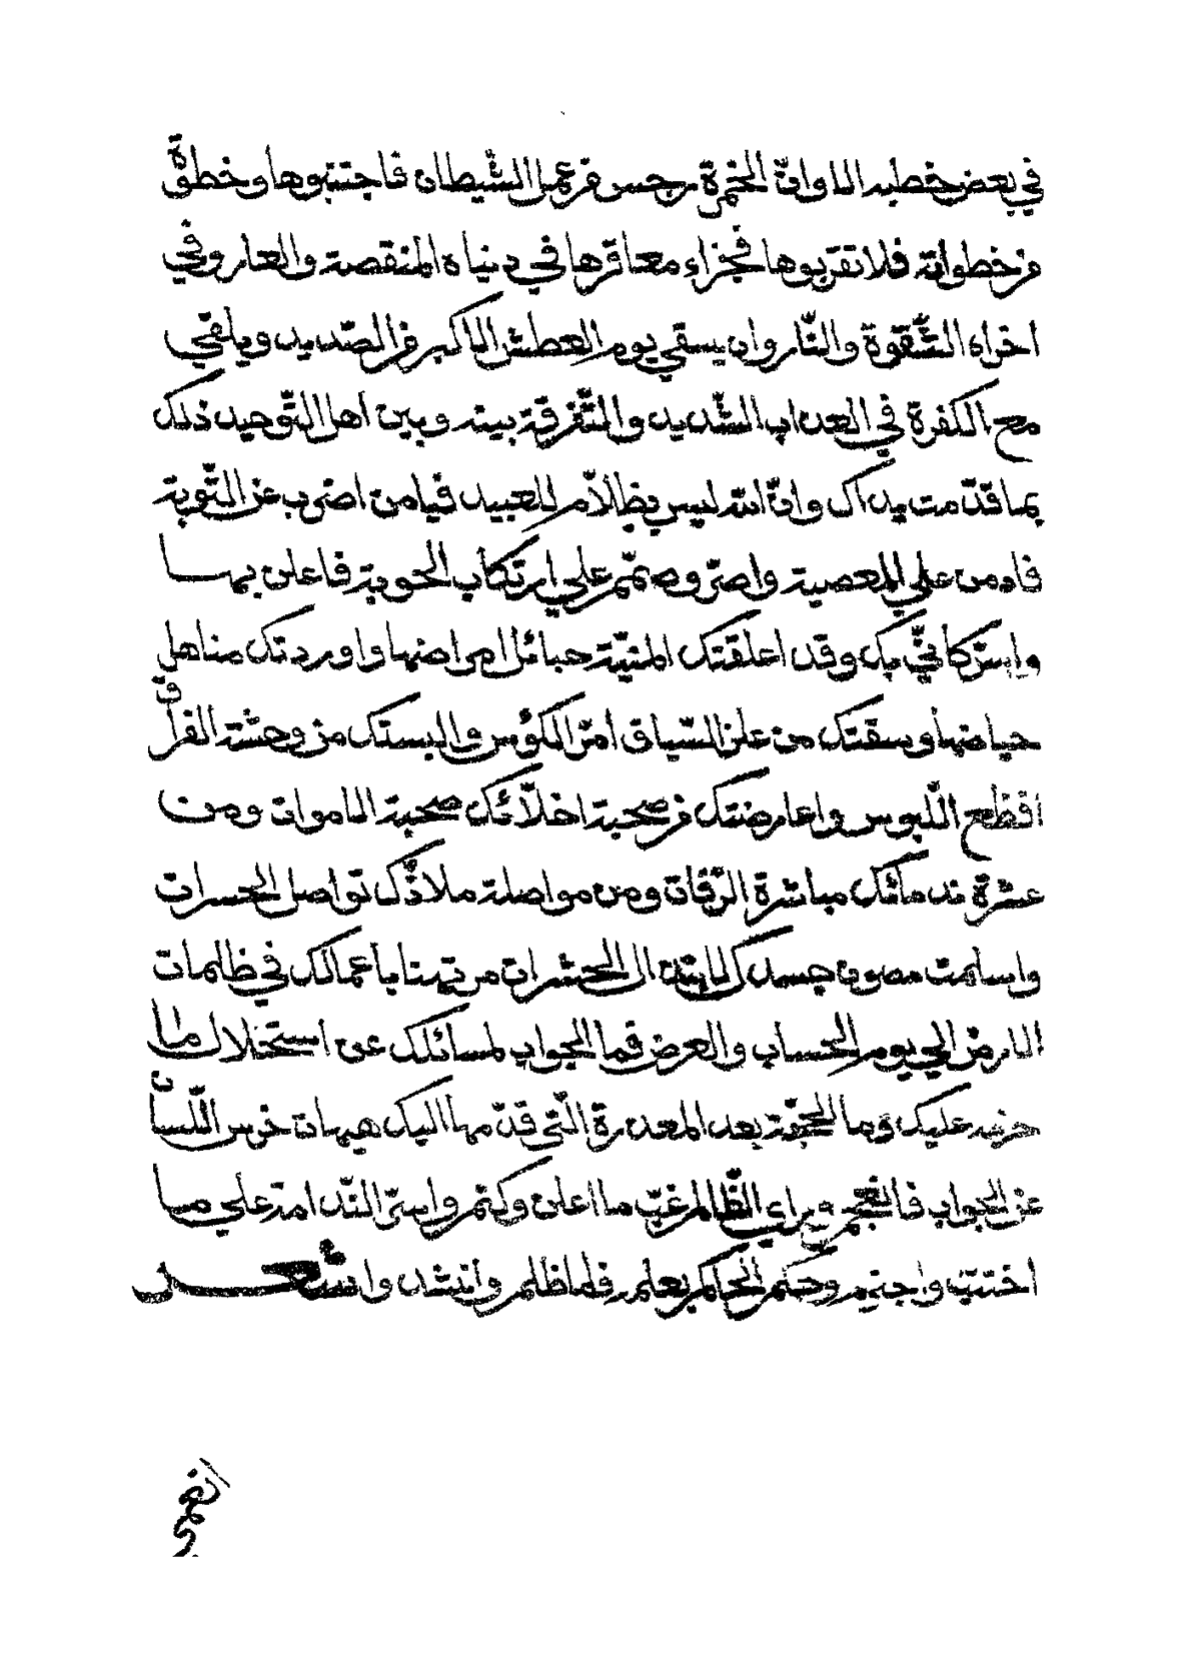 في بعض خطبه الا وانّ الخمرة رجس من عمل الشّيطان فاجتنبوها وخطوة
من خطواته فلا تقربوها فجزاء معاقرها في دنياه المنقصة والعار وفي
اخراه الشّقوة والنّار وان يسقي يوم العطش الاكبر من الصّديد ويلقي
مع الكفرة في العذاب الشّديد والتّفرقة بينه وبين اهل التّوحيد ذلك
بما قدّمت يداك وانّ الله ليس بظلاّم للعبيد فيا من اضرب عن التّوبة
فادمن علي المعصية واصرّ وصمّم علي ارتكاب الحوبة فاعلن بها
واسرّ كأنّي بك وقد اعلقتك المنيّة حبائل امراضها واوردتك مناهل
حياضها وسقتك من علز السّياق امرّ الكؤس والبستك من وحشة الفراق
افظع اللّبوس واعارضتك من صحبة اخلاّئك صحبة الاموات ومن
عشرة ندمائك مباشرة الرّفات ومن مواصلة ملاذّك تواصل الحسرات
واسلمت مصون جسدك لابتذال الحشرات مرتهنا باعمالك في ظلمات
الارض الي يوم الحساب والعرض فما الجواب لمسائلك عن استحلال ما
حرّمه عليك وما الحجّة بعد المعذرة الّتي قدّمها اليك هيهات خرس اللّسان
عن الجواب فانفحم وراي الظّالم غبّ ما اعلن وكتم واسرّ النّدامة علي ما
اختتت واجترم وحكم الحاكم بعلمه فما ظلم وانشد وانشـعـر
انفمي